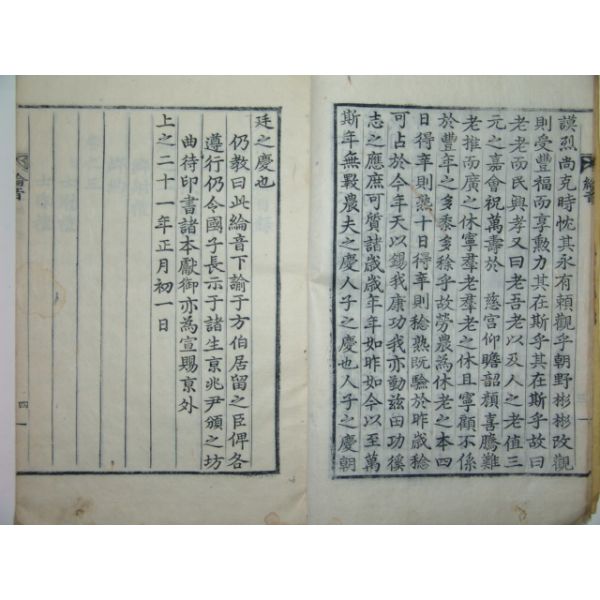 謨烈尚克時忱其永有賴觀乎朝野彬彬改觀
則受豐福而享勲力其在斯乎其在斯乎故曰
老老而民興孝又曰老吾老以及人之老值三
元之嘉會祝萬壽於 慈宮仰瞻韶顏喜騰難
老推而廣之休寧羣老羣老之休且寧顧不係
於豐年之多黍多稌乎故勞農為休老之本四
日得辛則蒸十日得辛則稔熟既驗於昨歲稔
可占於今年天以錫我康功我亦勤玆田功徯
志之應庶可質諸歲歲年年如昨如今以至萬
斯年無斁農夫之慶人子之慶也人子之慶朝
綸音
三
廷之慶也
仍教曰此綸音下諭于方伯居留之臣俾各
遵行仍令國子長示于諸生京兆尹頒之坊
曲待印書諸本獻御亦為宣賜京外
上之二十一年正月初一日
綸音
四